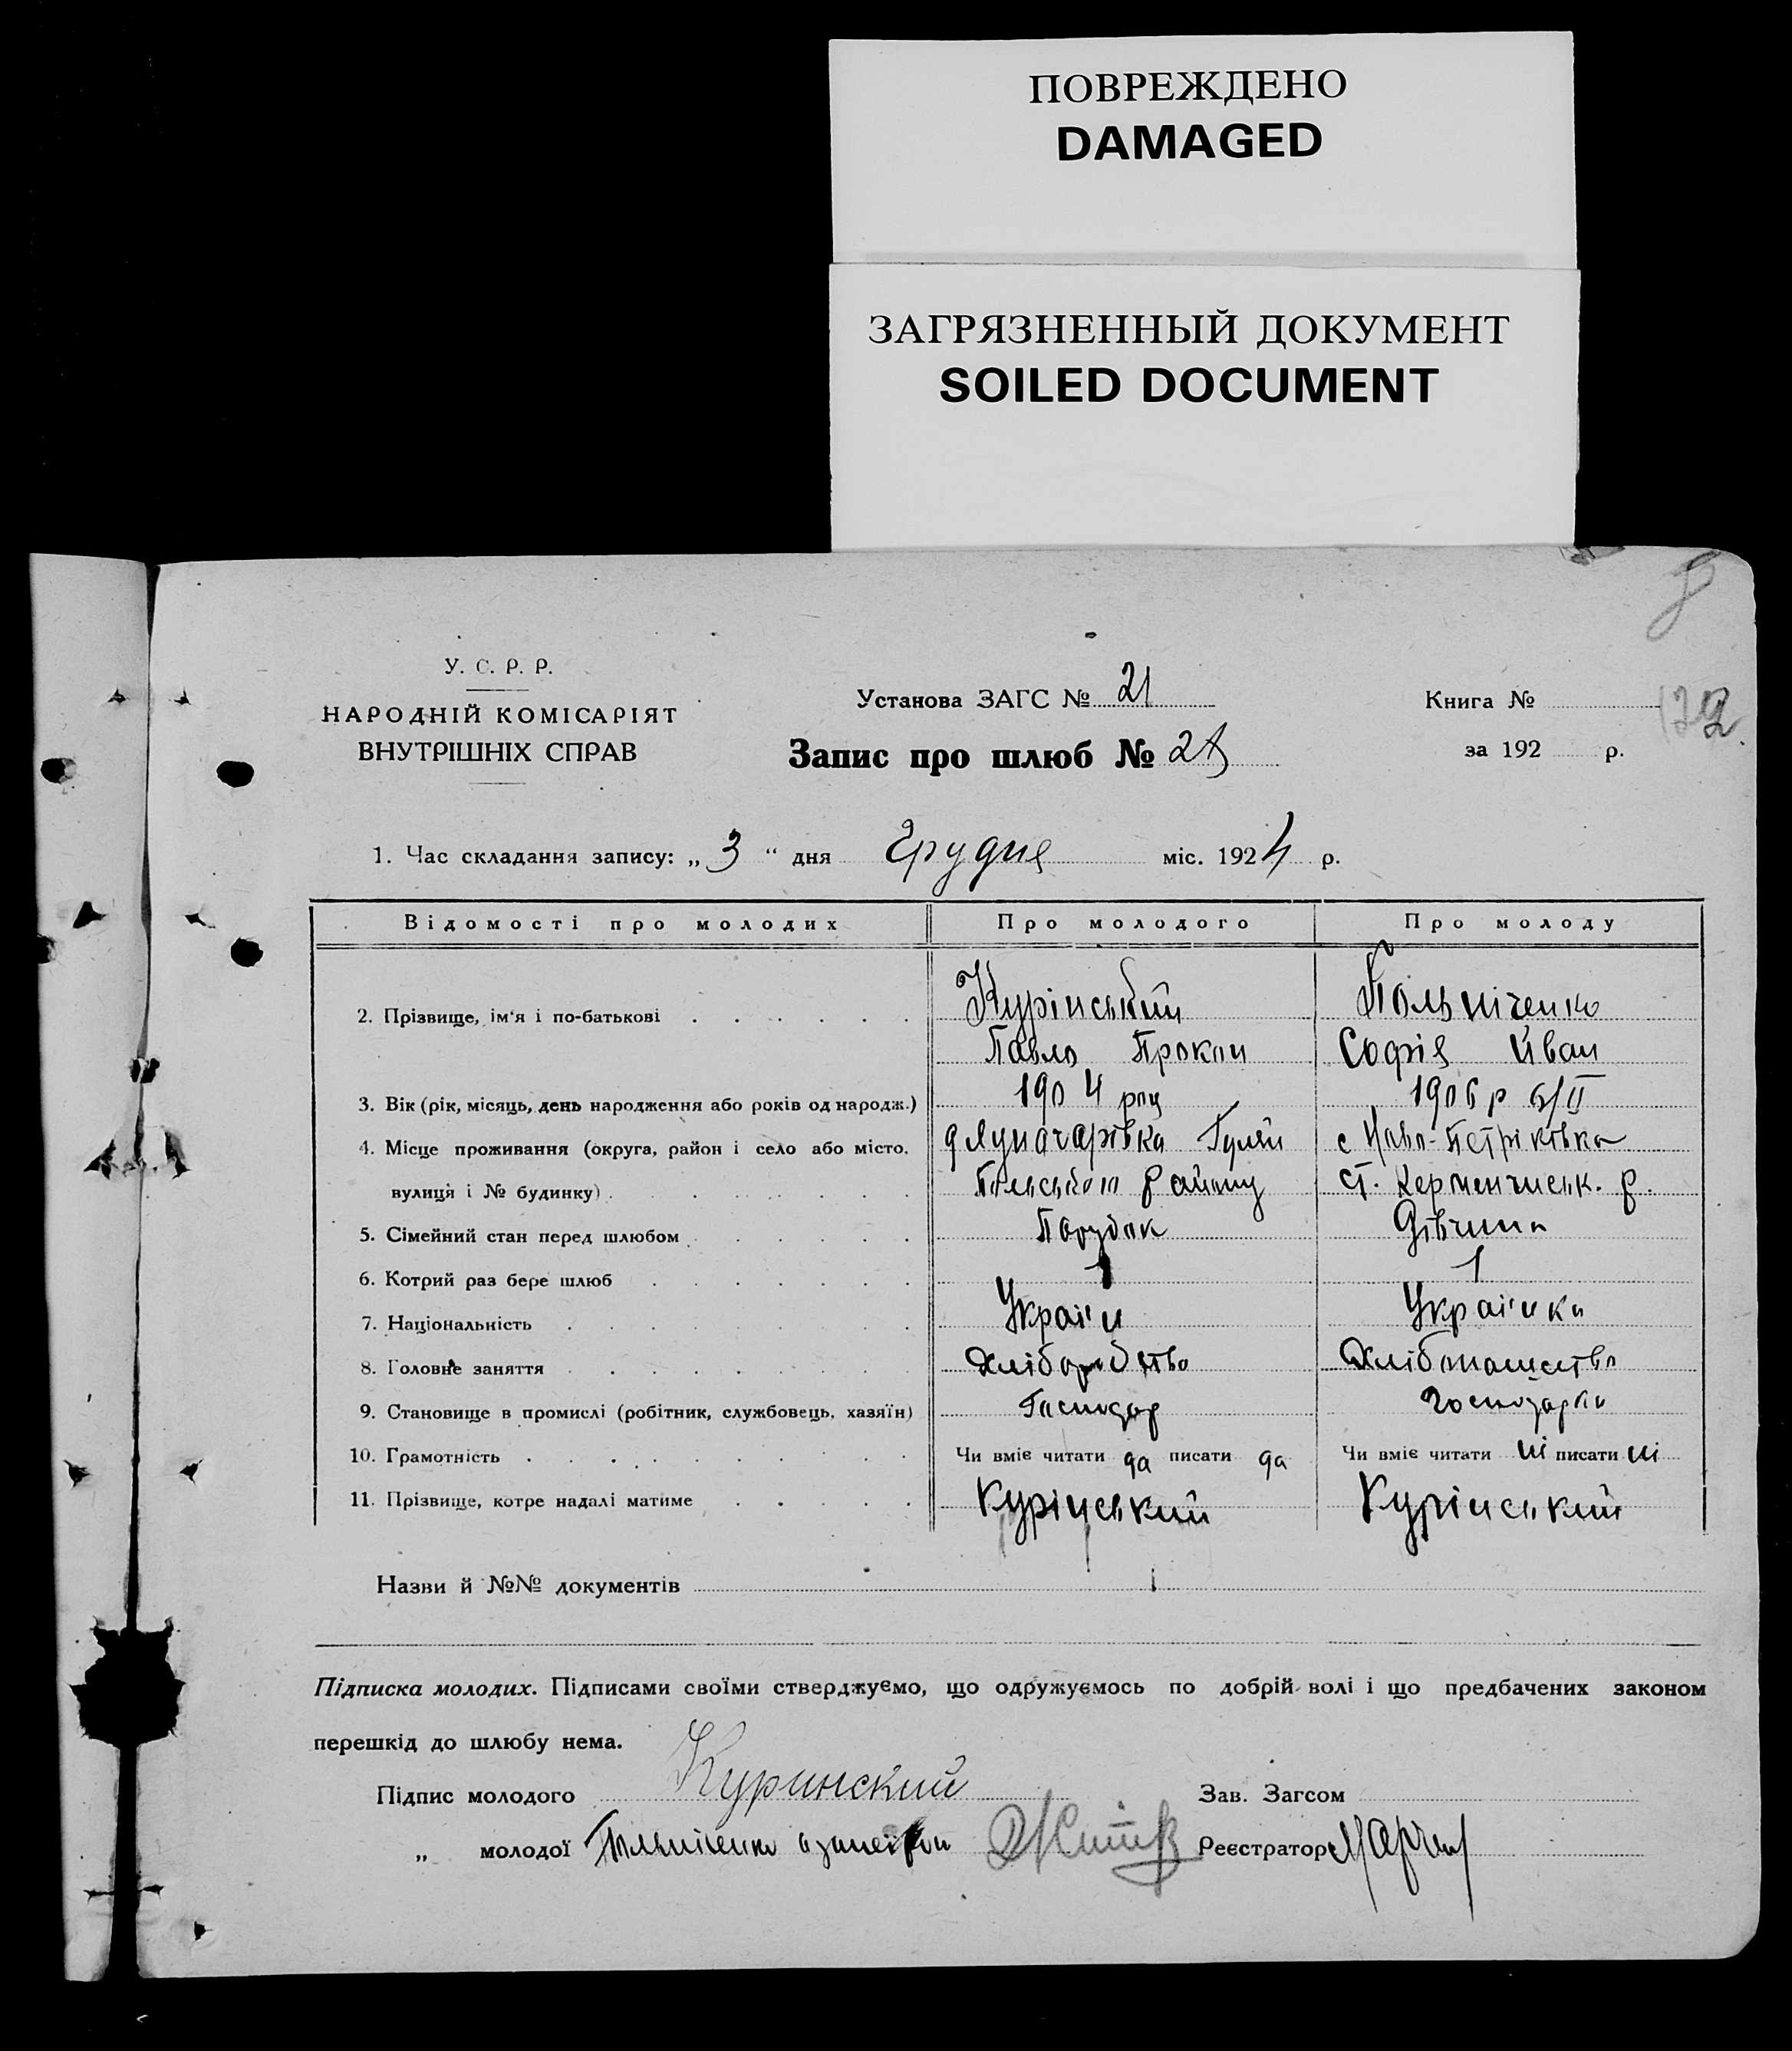 ПОВРЕЖДЕНО
DAMAGED
ЗАГРЯЗНЕННЫЙ ДОКУМЕНТ
SOILED DOCUMENT
У. С. Р. Р.
НАРОДНІЙ КОМІСАРІЯТ
ВНУТРІШНІХ СПРАВ
Установа ЗАГС № 21
Запис про шлюб №
Книга №
за 192 р.
1. Час складання запису: „ 3 “ дня Грудня міс. 1924 р.
Відомості про молодих Про молодого Про молоду
2. Прізвище, ім'я і по-батькові Курінський Польніченко
Павло Прокоп Софія Йван
3. Вік (рік, місяць, день народження або років од народж.) 1904 роц 1906 р 6/II
4. Місце проживання (округа, район і село або місто, д Луначарівка Гуляй с Ново-Петріківка
вулиця і № будинку) Польського району Ст. Керменчиськ. р.
5. Сімейний стан перед шлюбом Парубок Дівчина
6. Котрий раз бере шлюб 1 1
7. Національність Украін Украінка
8. Головне заняття Хліборобство Хлібопашество
9. Становище в промислі (робітник, службовець, хазяїн) Господар Господарка
10. Грамотність Чи вміє читати да писати да Чи вміє читати ні писати ні
11. Прізвище, котре надалі матиме Курінський Курінський
Назви й №№ документів
Підписка молодих. Підписами своїми стверджуємо, що одружуємось по добрій волі і що предбачених законом
перешкід до шлюбу нема.
Підпис молодого Куринский Зав. Загсом
„ молодої Польніченко Реєстратор